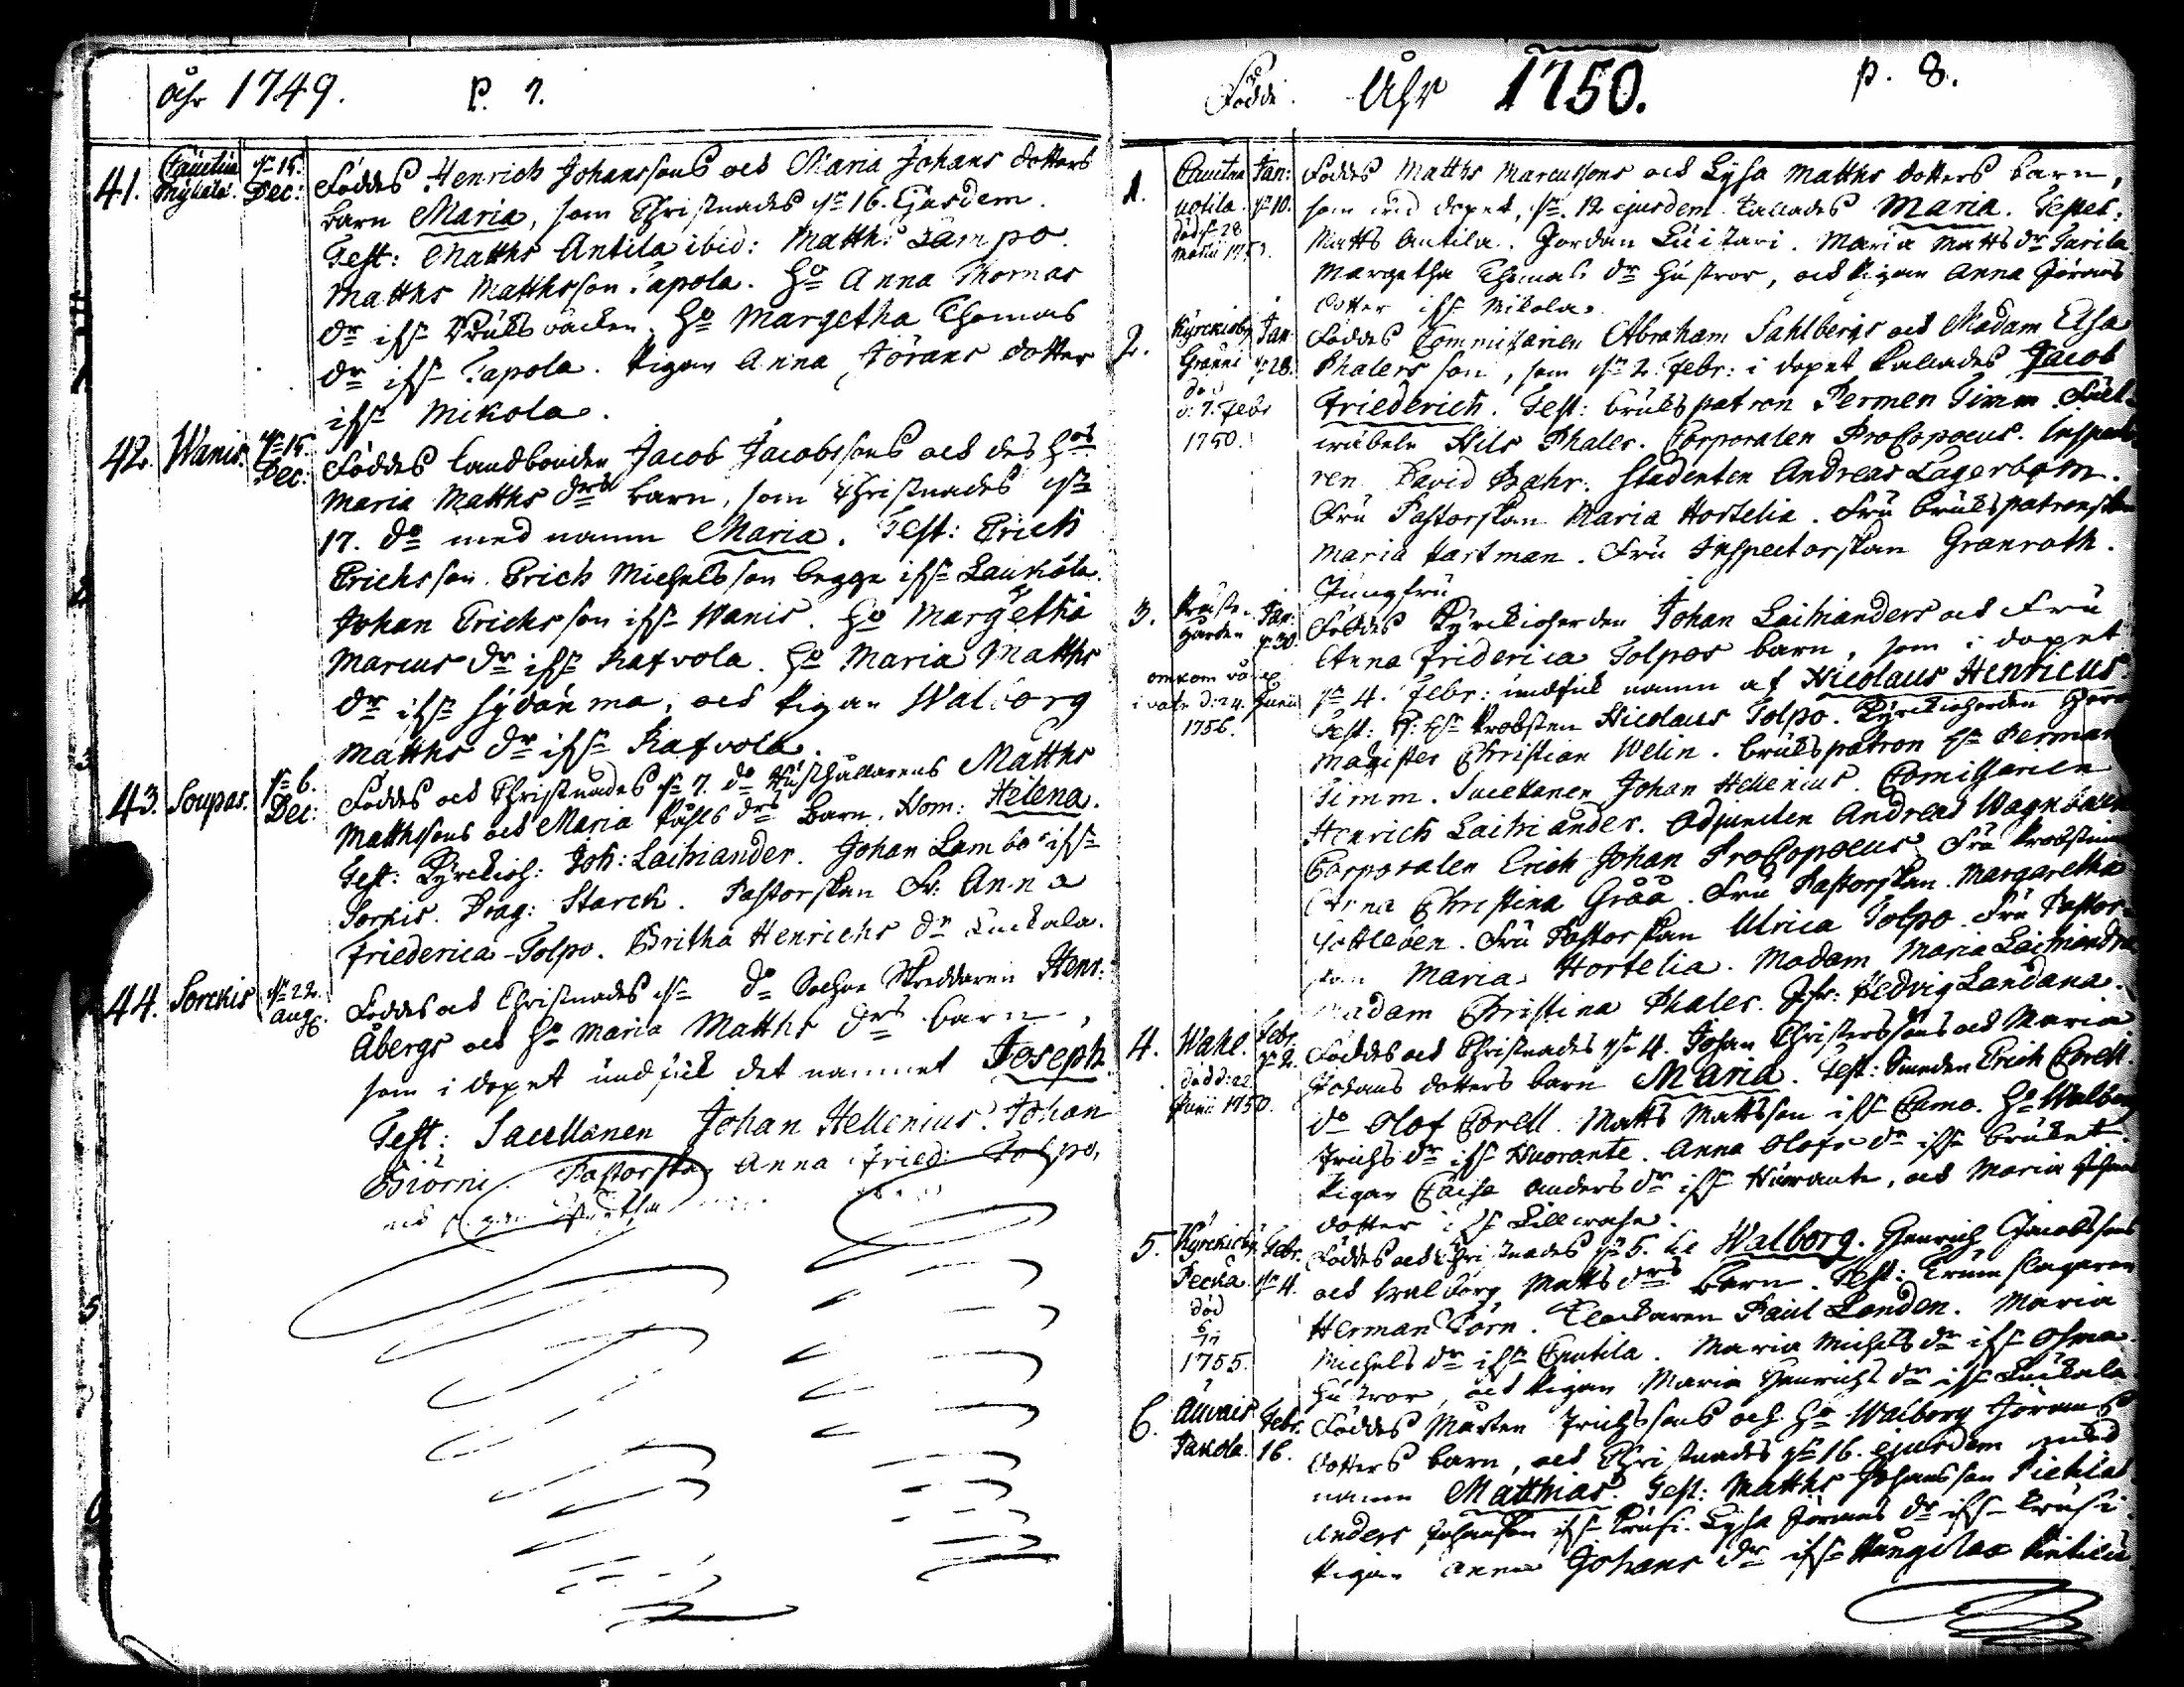 Åhr 1749. P. 7.
41. Cauttua Mykälä. d. 15. Dec:
Föddes Henrich Johanssons och Maria Johans dotters
barn Maria, som Christnades d. 16. Ejusdem.
Test: Matths Antila ibid: Matths Lampo.
Matths Matthsson Papola. Ho Anna Thomas
dr ifr. Bruksbacken. Ho Margetha Thomas
dr ifr. Papola. Pigan Anna Jörans dotter
ifr. Mikola.
42. Wanis. d. 15. Dec:
Föddes landbonden Jacob Jacobssons och des Hos
Maria Matths drs barn, som Christnades d.
17. do med namn Maria. Test: Erich
Erichsson. Erich Michelsson begge ifr. Laukola.
Johan Erichsson ifr. Wanis. Ho Margetha
Marcus dr ifr. Kafvola. Ho Maria Matths
dr ifr. Sydänma, och pigan Walborg
Matths dr ifr. Kafvola.
43. Soupas. d. 6. Dec:
Föddes och Christnades d. 7. do Rusthållarens Matths
Matthssons och Maria Påhls drs barn. Nom: Helena.
Test: Kyrckioh: Joh: Laihiander. Johan Lambo ifr.
Sorkis. Drag: Starck. Pastorskan Fr: Anna
Friederica Polpo. Britha Henrichs dr Luckala.
44. Sorckis d. 22. Aug.
Föddes och Christnades d. do Sochne Skreddaren Henr:
Åbergs och Ho Maria Matths drs barn,
som i dopet undfick det namnet Joseph.
Test: Sacellanen Johan Hellenius. Johan
Biörni. Pastorskan Anna Fried: Polpo,
och pigan
Födde. Åhr 1750. p. 8.
1. Cauttua Uotila. Jan: d. 10.
död d. 28
Martii 175
Föddes Matths Marcussons och Lysa Matths dotters barn,
som vid dopet, d. 12 ejusdem kallades Maria. Testes:
Matts Antila. Jordan Luistari. Maria Matts dr Parila
Margetha Thomas dr hustror, och pigan Anna Jörans
dotter ifr. Mikola.
2. Kyrckioby Jan: d. 28.
död
d: 7. Febr
1750.
Föddes Commissarien Abraham Sahlbergs och Madam Elsa
Phalers son, som d. 2. Febr: i dopet kallades Jacob
Friederich. Test: bruks patron Permen Timm. Fält-
wäbeln Nils Phaler. Corporalen Procopoeus. Inspecto
ren David Bahr. Studenten Andreas Lagerbom.
Fru Pastorskan Maria Hortelia. Fru brukspatronskan
Maria Hartman. Fru Inspectorskan Granroth.
Jungfru
3. Präste-gården Jan: d. 30.
omkom
i vatn d: 24. Junii
1756.
Föddes Kyrckioherden Johan Laihianders och Fru
Anna Friderica Polpos barn, som i dopet
d. 4. Febr: undfick namn af Nicolaus Henricus.
Test: Probsten Nicolaus Polpo. Kyrckioherden
Magister Christian Welin. Brukspatron Hr Perman
Timm. Sacellanen Johan Hellenius. Comissarien
Henrich Laihiander. Adjuncten Andreas
Corporalen Erich Johan Procopoeus. Fru Probstinnan
Anna Christina Gråå. Fru Pastorskan Margaretha
Fru Pastorskan Ulrica Polpo. Fru Pastor-
skan Maria Hortelia. Madam Maria Laihiandra
Madam Christina Phaler. Jfr: Hedvig Landana.
4. Wahl. Febr. d. 2.
död d: 22
Junii 1750.
Föddes och Christnades d. 4. Johan Christerssons och Maria
Johans dotters barn Maria. Test: Smeden Erich Corell.
do Olof Corell. Matts Mattsson ifr. Camo. Ho Walborg
Erichs dr ifr. Huorante. Anna Olofs dr ifr. Bruket.
Pigan Caisa Anders dr ifr. Huorante, och Maria Johans
dotter ifr.
5. Kyrckioby. Pecka Febr. d. 4.
död
1755.
Föddes och Christnades d. 5. Walborg. Henrich Jacobssons
och Walborg Matts drs barn. Test: Trumslagaren
Herman Törn. Clockaren Paul Londen. Maria
Michels dr ifr. Maria Michels dr ifr.
hustror, och pigan Maria Henrichs dr ifr. Luckala
6. Auvais Jakola. Febr. 16.
Föddes Mårten Erichssons och Ho Walborg Jörans
dotters barn, och Christnades d. 16. ejusdem med
namn Matthias. Test: Matths Johansson Pietilä
Anders Johansson ifr. Krusi. Lysa Jörans dr ifr. Krusi
Pigan Anna Johans dr ifr.